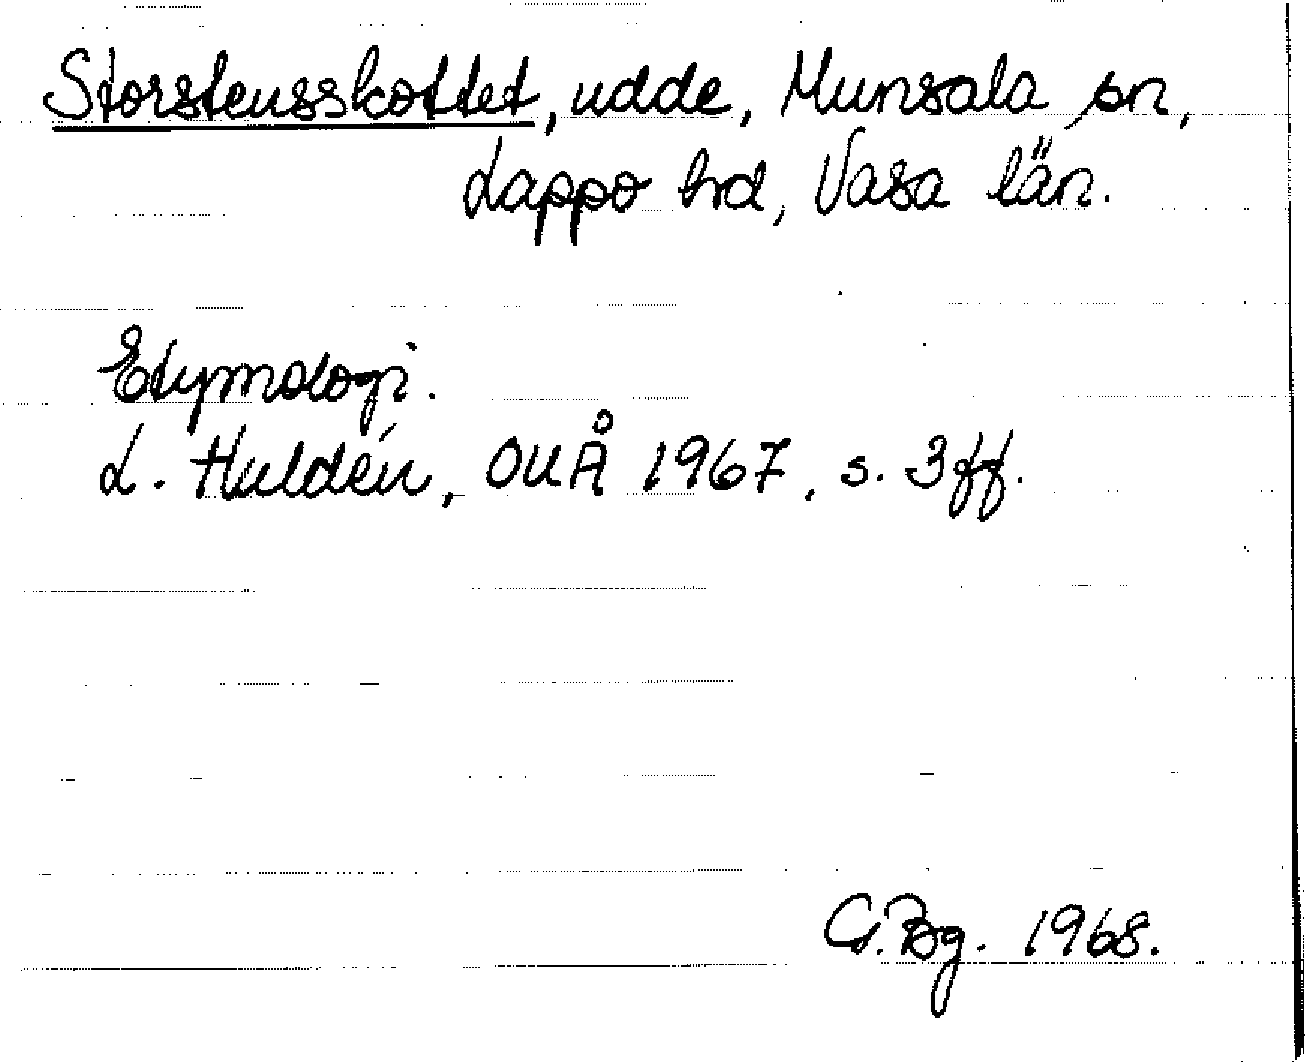 Storstensskottet, udde, Munsala sn,
Lappo hd, Vasa län.
Etymologi.
L. Huldén, OUÅ 1967, s. 3ff.
G.Bg. 1968.